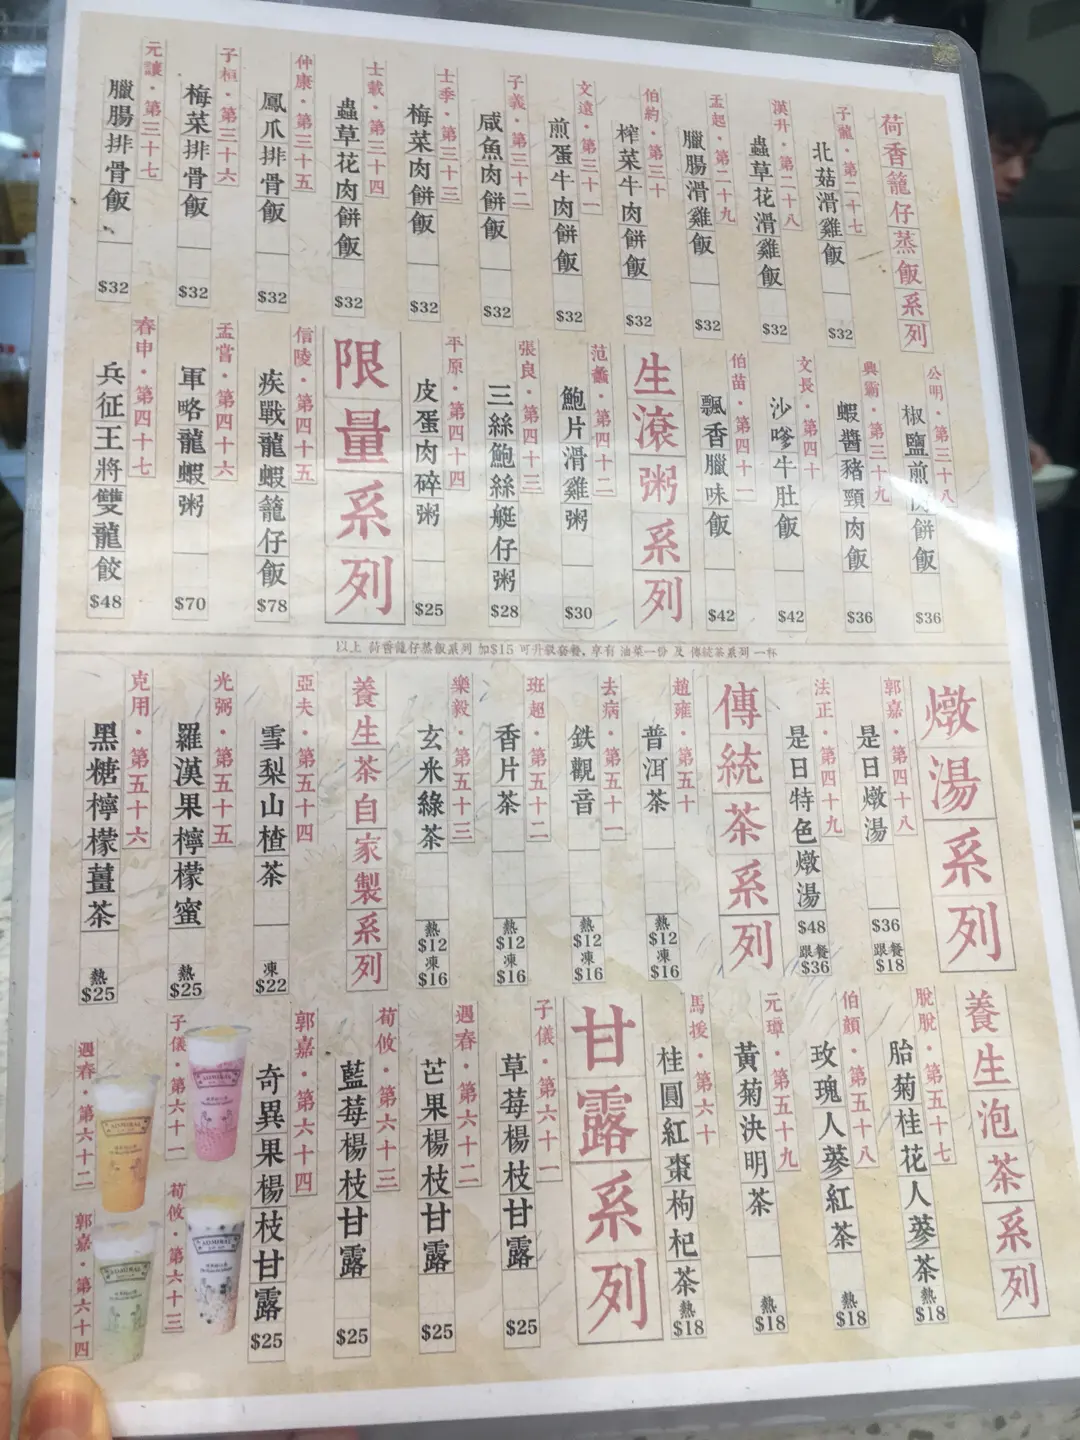 荷香籠仔蒸飯系列
子龍·第二十七
北菇滑雞飯 $32
漢升·第二十八
蟲草花滑雞飯 $32
孟起·第二十九
臘腸滑雞飯 $32
伯約·第三十
榨菜牛肉餅飯 $32
文遠·第三十一
煎蛋牛肉餅飯 $32
子義·第三十二
咸魚肉餅飯 $32
士季·第三十三
梅菜肉餅飯 $32
士載·第三十四
蟲草花肉餅飯 $32
仲康·第三十五
鳳爪排骨飯 $32
子桓·第三十六
梅菜排骨飯 $32
元讓·第三十七
臘腸排骨飯 $32
公明·第三十八
椒鹽煎肉餅飯 $36
典霸·第三十九
蝦醬豬頸肉飯 $36
文長·第四十
沙嗲牛肚飯 $42
伯苗·第四十一
飄香臘味飯 $42
生滾粥系列
范蠡·第四十二
鮑片滑雞粥 $30
張良·第四十三
三絲鮑絲艇仔粥 $28
平原·第四十四
皮蛋肉碎粥 $25
限量系列
信陵·第四十五
疾戰龍蝦籠仔飯 $78
孟嘗·第四十六
軍略龍蝦粥 $70
春申·第四十七
兵征王將雙龍餃 $48
以上 荷香籠仔蒸飯系列 加$15 可升級套餐, 享有 油菜一份 及 傳統茶系列 一杯
燉湯系列
郭嘉·第四十八
是日燉湯 $36 跟餐 $18
法正·第四十九
是日特色燉湯 $48 跟餐 $36
傳統茶系列
趙雍·第五十
普洱茶 熱 $12 凍 $16
去病·第五十一
鉄觀音 熱 $12 凍 $16
班超·第五十二
香片茶 熱 $12 凍 $16
樂毅·第五十三
玄米綠茶 熱 $12 凍 $16
養生茶自家製系列
亞夫·第五十四
雪梨山楂茶 凍 $22
光弼·第五十五
羅漢果檸檬蜜 熱 $25
克用·第五十六
黑糖檸檬薑茶 熱 $25
養生泡茶系列
脫脫·第五十七
胎菊桂花人蔘茶 熱 $18
伯顏·第五十八
玫瑰人蔘紅茶 熱 $18
元璋·第五十九
黃菊決明茶 熱 $18
馬援·第六十
桂圓紅棗枸杞茶 熱 $18
甘露系列
子儀·第六十一
草莓楊枝甘露 $25
遇春·第六十二
芒果楊枝甘露 $25
荀攸·第六十三
藍莓楊枝甘露 $25
郭嘉·第六十四
奇異果楊枝甘露 $25
子儀·第六十一
荀攸·第六十三
遇春·第六十二
郭嘉·第六十四
ADMIRAL
ADMIRAL
ADMIRAL
ADMIRAL